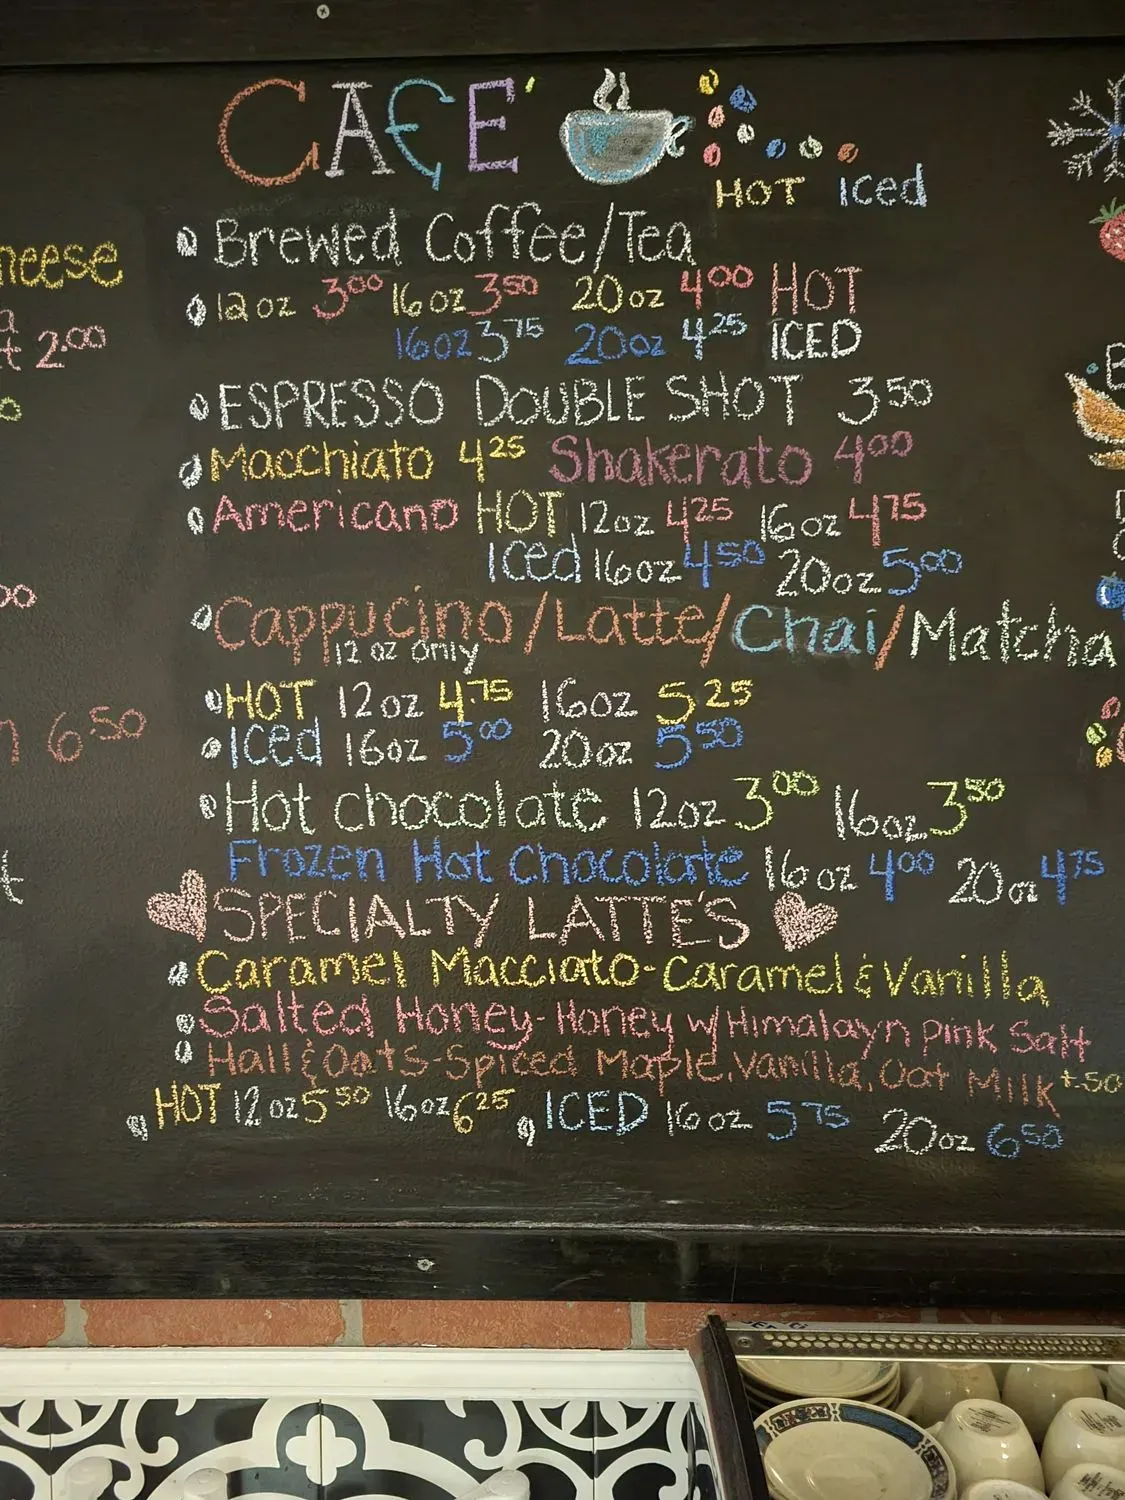 CAFE'
HOT Iced
Brewed Coffee/Tea
12oz 3.00 16oz 3.50 20oz 4.00 HOT
16oz 3.75 20oz 4.25 ICED
ESPRESSO DOUBLE SHOT 3.50
Macchiato 4.25 Shakerato 4.00
Americano HOT 12oz 4.25 16oz 4.75
Iced 16oz 4.50 20oz 5.00
Cappucino/Latte/Chai/Matcha
12 oz only
HOT 12oz 4.75 16oz 5.25
Iced 16oz 5.00 20oz 5.50
Hot chocolate 12oz 3.00 16oz 3.50
Frozen Hot Chocolate 16oz 4.00 20oz 4.75
SPECIALTY LATTE'S
Caramel Macciato-Caramel & Vanilla
Salted Honey-Honey w/Himalayn pink Salt
Hall & Oats-Spiced Maple, Vanilla, Oat Milk +.50
HOT 12oz 5.50 16oz 6.25 ICED 16oz 5.75 20oz 6.50
2.00
6.50